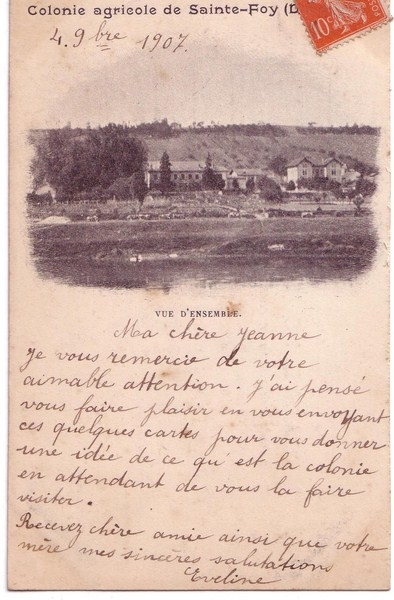 Colonie agricole de Sainte-Foy (D
10c
4. 9bre 1907.
VUE D'ENSEMBLE.
Ma chère Jeanne
Je vous remercie de votre
aimable attention. J'ai pensé
vous faire plaisir en vous envoyant
ces quelques cartes pour vous donner
une idée de ce qu'est la colonie
en attendant de vous la faire
visiter.
Recevez chère amie ainsi que votre
mère mes sincères salutations
Eveline